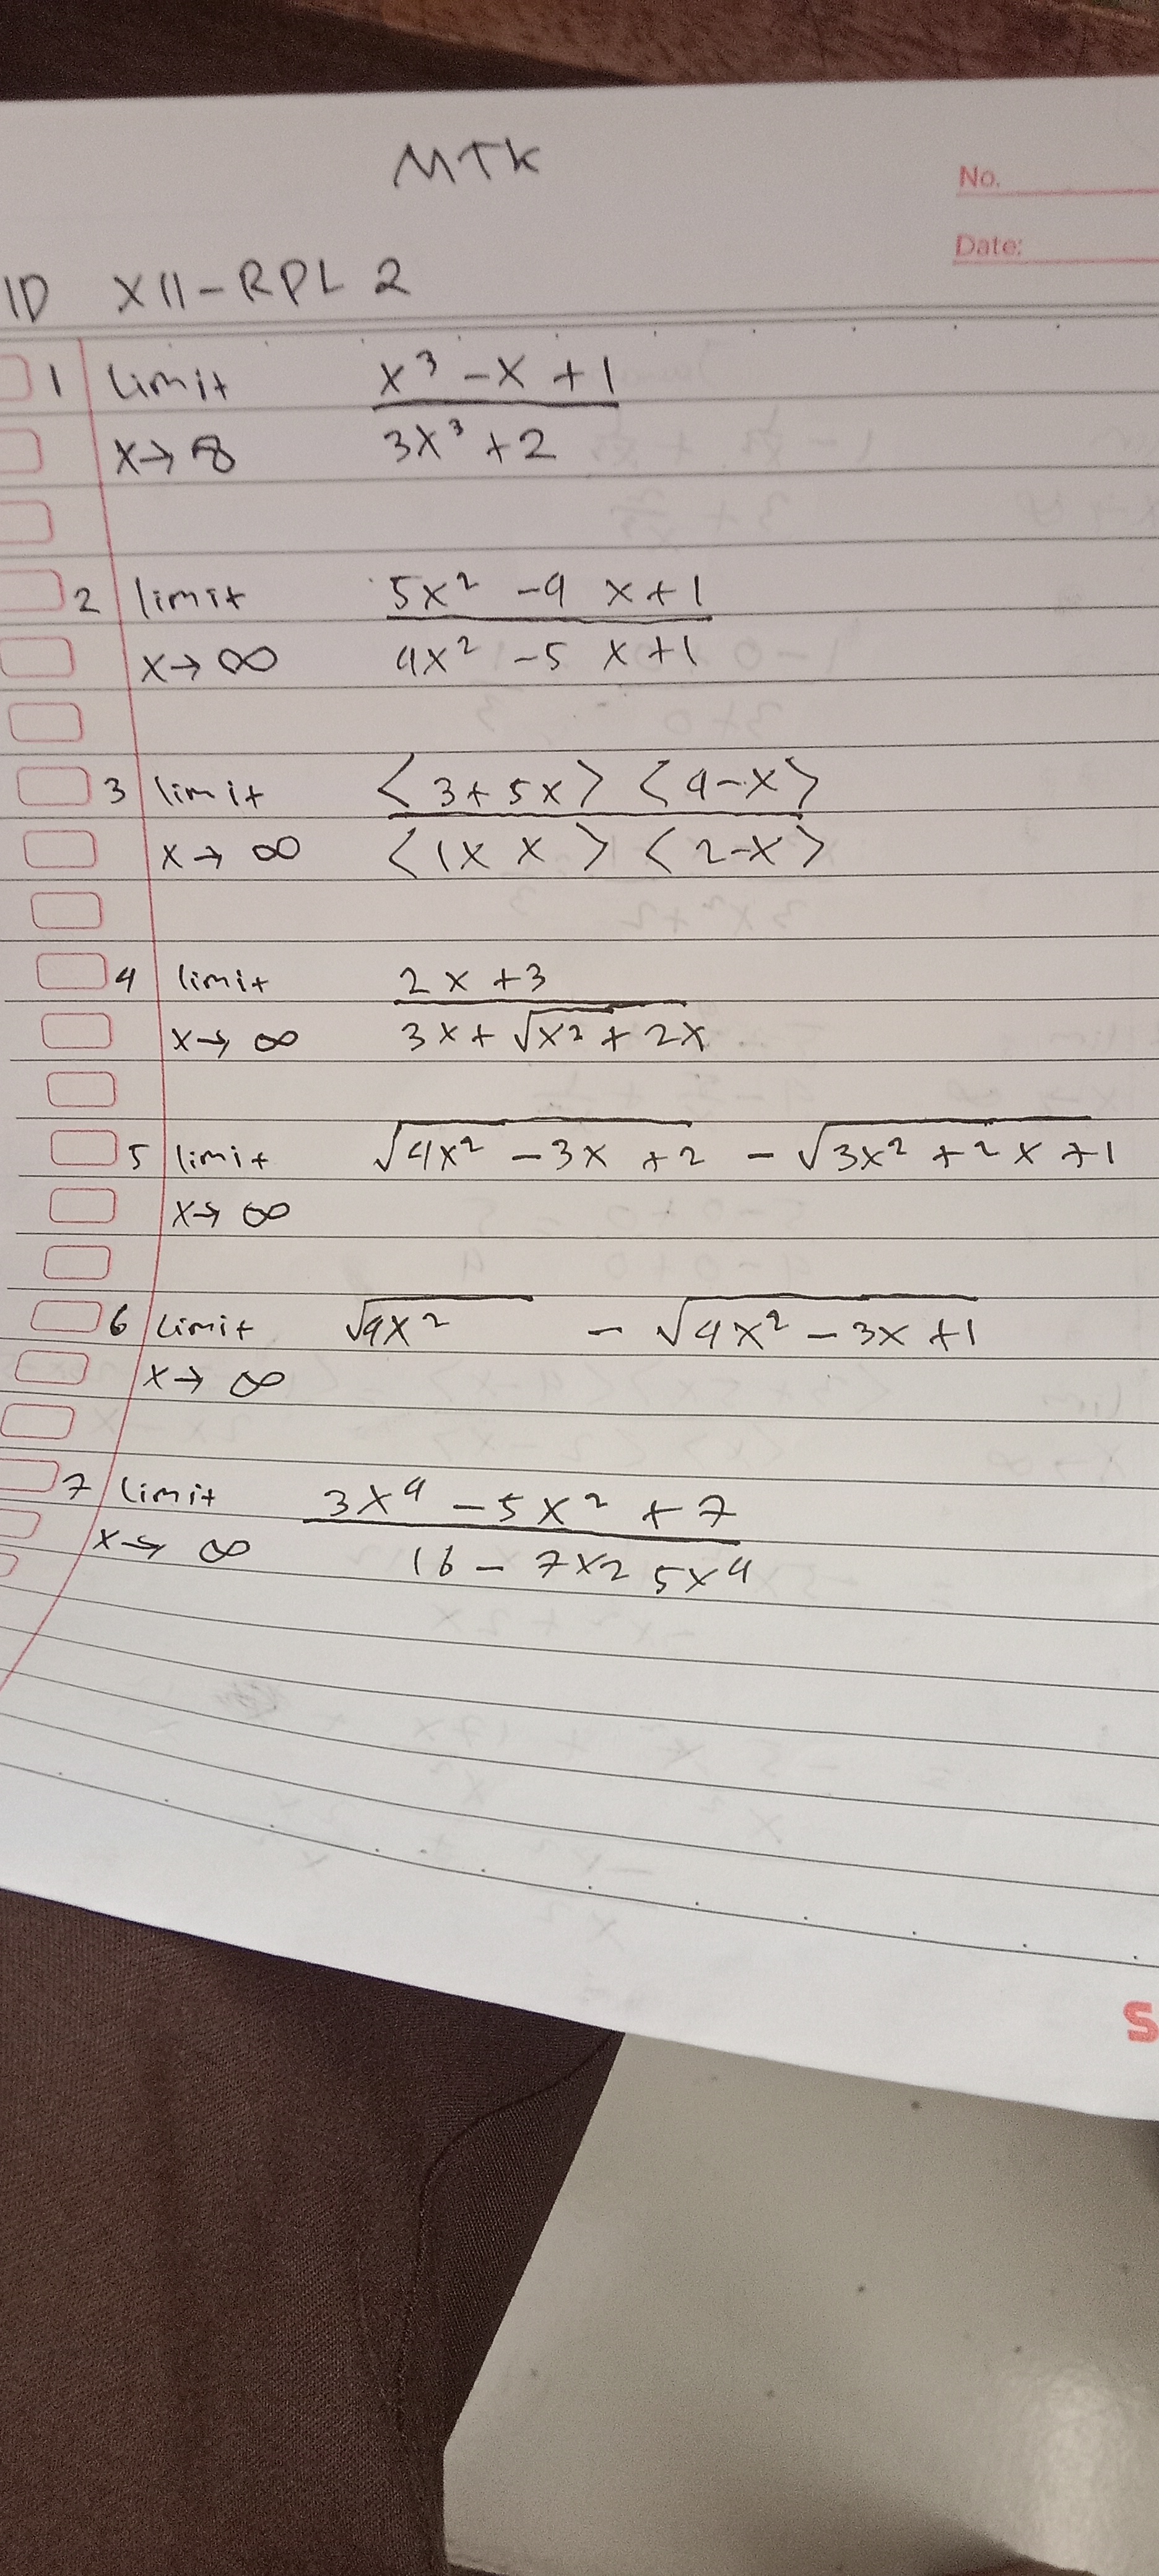 MTK
No.
Date:
ID XII-RPL 2
1 limit x³ -x +1
x→∞ 3x³ +2
2 limit 5x² -9 x+1
x→∞ 4x² -5 x+1
3 limit <3+5x> <4-x>
x→∞ <1x x> <2-x>
4 limit 2x+3
x→∞ 3x+ √x²+2x
5 limit √4x² -3x +2 - √3x² +2x+1
x→∞
6 limit √4x² - √4x² -3x+1
x→∞
7 limit 3x⁴ -5x² +7
x→∞ 16- 7x2 5x⁴
S